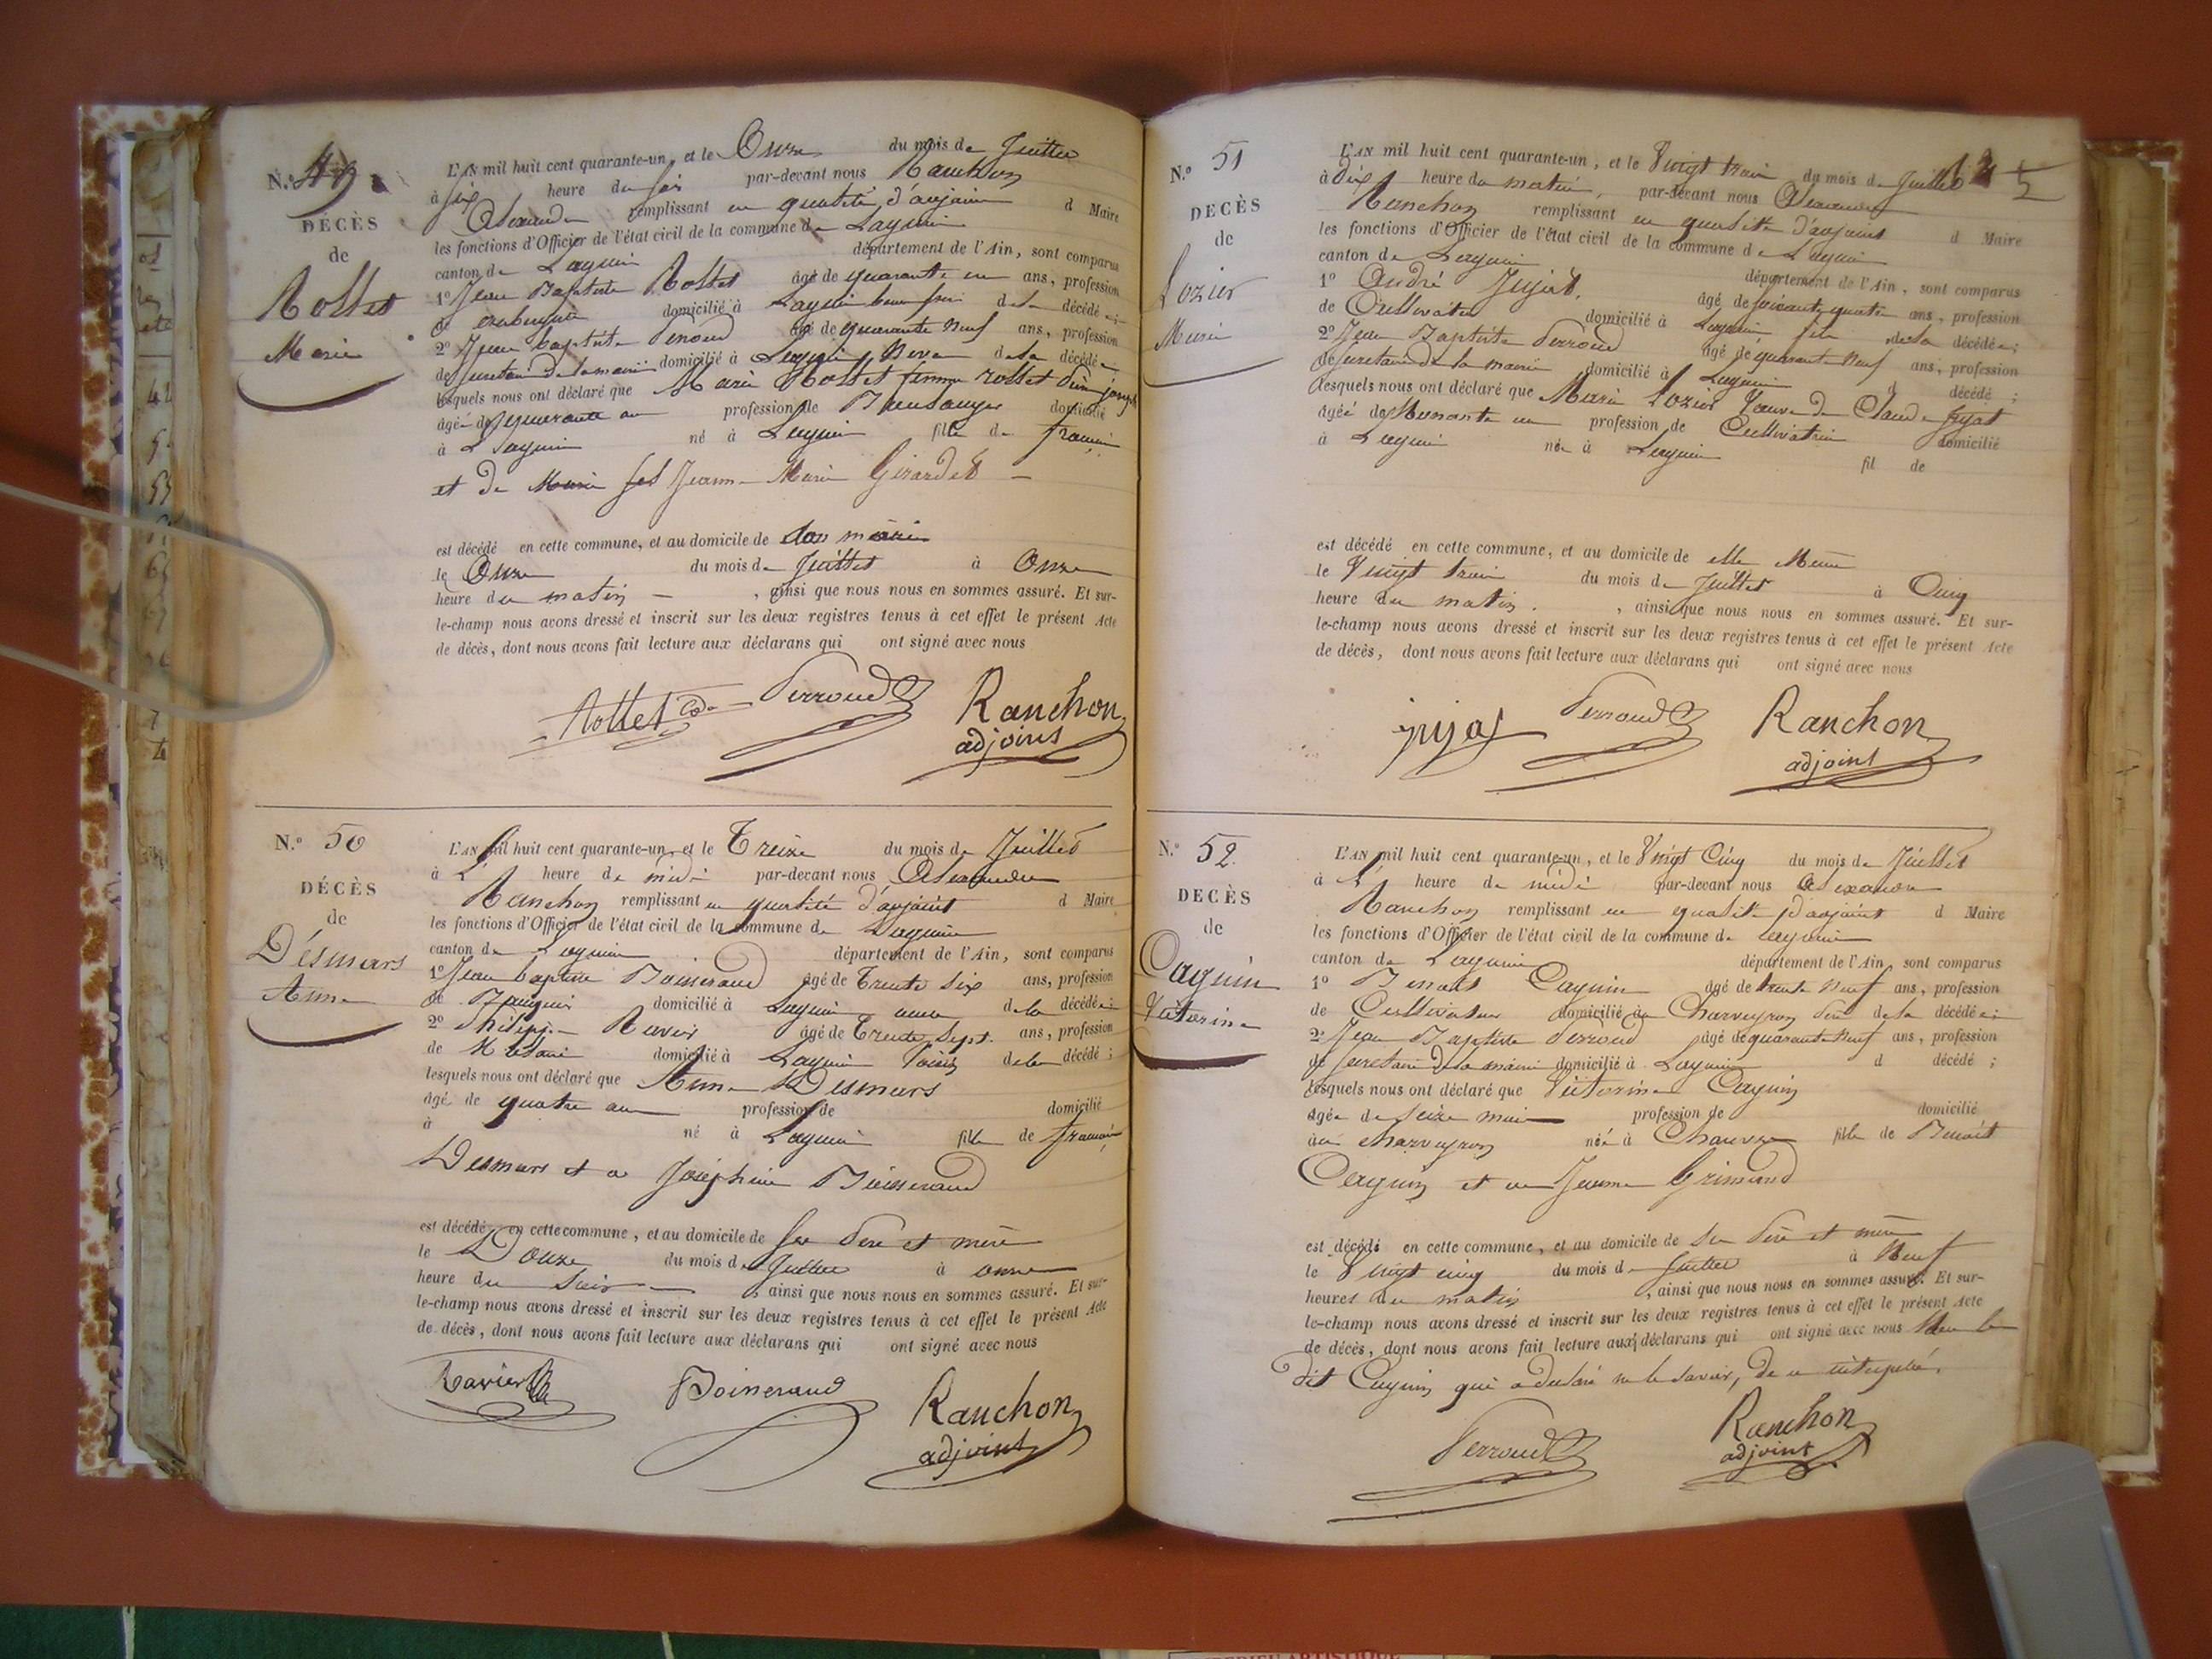 N.o 49
DÉCÈS
de
Rollet
Marie
L'AN mil huit cent quarante-un, et le Onze du mois de Juillet
à six heure du soir par-devant nous Ranchon
Alexandre remplissant en qualité d'adjoint d Maire
les fonctions d'Officier de l'état civil de la commune de Lagnieu
canton de Lagnieu département de l'Ain, sont comparus
1o Jean Baptiste Rollet âgé de quarante un ans, profession
de domicilié à Lagnieu beau frère de la décédée;
2o Jean baptiste Perroud âgé de quarante neuf ans, profession
de secretaire de la mairie domicilié à Lagnieu de la décédée
lesquels nous ont déclaré que Marie Rollet femme rollet joseph
âgée de quarante ans profession de domicilié
à Lagnieu né à Lagnieu fille de françois
et de Marie Jeanne Marie Girardet
est décédé en cette commune, et au domicile de son mari
le Onze du mois de Juillet à Onze
heure du matin, ainsi que nous nous en sommes assuré. Et sur-
le-champ nous avons dressé et inscrit sur les deux registres tenus à cet effet le présent Acte
de décès, dont nous avons fait lecture aux déclarans qui ont signé avec nous
Rollet Perroud Ranchon
adjoint
N.o 50
DÉCÈS
de
Désmars
Anne
L'AN mil huit cent quarante-un, et le Treize du mois de Juillet
à L' heure de midi par-devant nous Alexandre
Ranchon remplissant en qualité d'adjoint d Maire
les fonctions d'Officier de l'état civil de la commune de Lagnieu
canton de Lagnieu département de l'Ain, sont comparus
1o Jean baptiste Boisserand âgé de Trente Six ans, profession
de domicilié à Lagnieu de la décédée;
2o Philippe Ravier âgé de Trente Sept ans, profession
de Notaire domicilié à Lagnieu Voisin de la décédé;
lesquels nous ont déclaré que Anne Desmars
âgé de quatre ans profession de domicilié
à né à Lagnieu fille de françois
Desmars et de Joséphine Boisserand
est décédé en cette commune, et au domicile de ses Père et mère
le Douze du mois de Juillet à onze
heure du Soir, ainsi que nous nous en sommes assuré. Et sur-
le-champ nous avons dressé et inscrit sur les deux registres tenus à cet effet le présent Acte
de décès, dont nous avons fait lecture aux déclarans qui ont signé avec nous
Ravier Boisserand Ranchon
adjoint
N.o 51
DÉCÈS
de
Lozier
Marie
L'AN mil huit cent quarante-un, et le Vingt trois du mois de Juillet
à dix heure du matin, par-devant nous Alexandre
Ranchon remplissant en qualité d'adjoint d Maire
les fonctions d'Officier de l'état civil de la commune de Lagnieu
canton de Lagnieu département de l'Ain, sont comparus
1o André Jujat, âgé de soixante quatre ans, profession
de Cultivateur domicilié à Lagnieu fils de la décédée;
2o Jean Baptiste Perroud âgé de quarante neuf ans, profession
de secretaire de la mairie domicilié à Lagnieu d décédé;
lesquels nous ont déclaré que Marie Lozier Veuve de Claude Jujat
âgée de Nonante un profession de Cultivatrice domicilié
à Lagnieu née à Lagnieu fil de
est décédé en cette commune, et au domicile de elle Même
le Vingt trois du mois de Juillet à Cinq
heure du matin, ainsi que nous nous en sommes assuré. Et sur-
le-champ nous avons dressé et inscrit sur les deux registres tenus à cet effet le présent Acte
de décès, dont nous avons fait lecture aux déclarans qui ont signé avec nous
jujat Perroud Ranchon
adjoint
N.o 52
DÉCÈS
de
Caguin
Victorine
L'AN mil huit cent quarante-un, et le Vingt Cinq du mois de Juillet
à L' heure de midi par-devant nous Alexandre
Ranchon remplissant en qualité d'adjoint d Maire
les fonctions d'Officier de l'état civil de la commune de Lagnieu
canton de Lagnieu département de l'Ain, sont comparus
1o Benoit Caguin âgé de trente Neuf ans, profession
de Cultivateur domicilié à Charveyron Père de la décédée;
2o Jean Baptiste Perroud âgé de quarante Neuf ans, profession
de secretaire de la mairie domicilié à Lagnieu d décédé;
lesquels nous ont déclaré que Victorine Caguin
âgée de seize mois profession de domicilié
au charveyron née à fille de Benoit
Caguin et de Jeanne Grimand
est décédé en cette commune, et au domicile de ses Père et mère
le Vingt cinq du mois de Juillet à Neuf
heures du matin, ainsi que nous nous en sommes assuré. Et sur-
le-champ nous avons dressé et inscrit sur les deux registres tenus à cet effet le présent Acte
de décès, dont nous avons fait lecture aux déclarans qui ont signé avec nous Non le
dit Caguin qui a déclaré ne le savoir, de ce interpellé.
Perroud Ranchon
adjoint